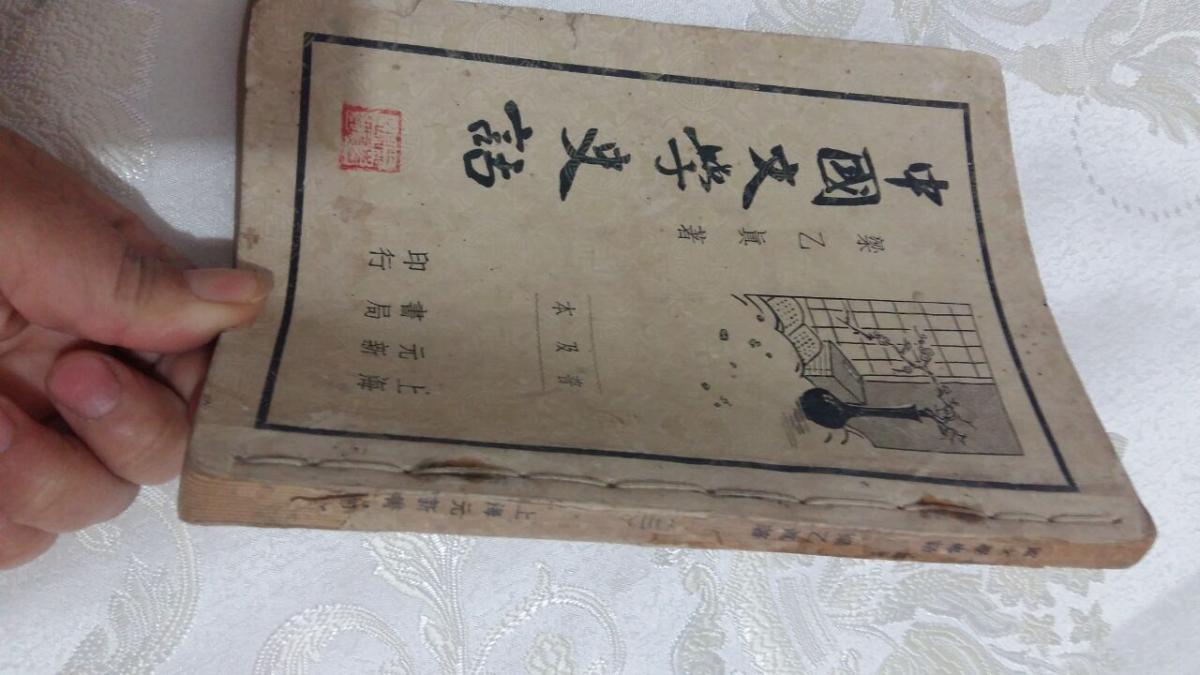 中國文學史話
梁乙眞著
普及本
上海元新書局印行
梁乙眞著
上海元新書